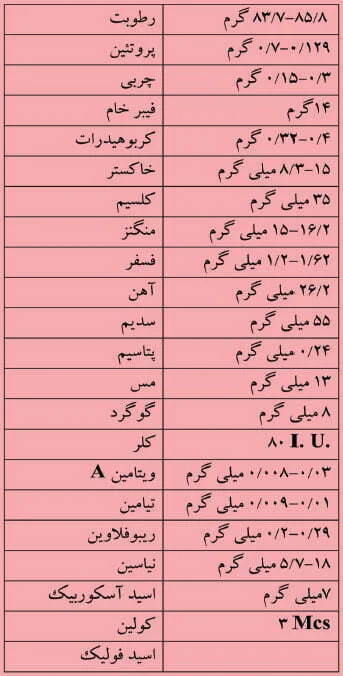 رطوبت ۸۳/۷-۸۵/۸ گرم
پروتئین ۰/۷-۰/۱۲۹ گرم
چربی ۰/۱۵-۰/۳ گرم
فیبر خام ۱۴گرم
کربوهیدرات ۰/۳۲-۰/۴ گرم
خاکستر ۸/۳-۱۵ میلی گرم
کلسیم ۳۵ میلی گرم
منگنز ۱۵-۱۶/۲ میلی گرم
فسفر ۱/۲-۱/۶۲ میلی گرم
آهن ۲۶/۲ میلی گرم
سدیم ۵۵ میلی گرم
پتاسیم ۰/۲۴ میلی گرم
مس ۱۳ میلی گرم
گوگرد ۸ میلی گرم
کلر ۸۰ I. U.
ویتامین A ۰/۰۰۸-۰/۰۳ میلی گرم
تیامین ۰/۰۰۹-۰/۰۱ میلی گرم
ریبوفلاوین ۰/۲-۰/۲۹ میلی گرم
نیاسین ۵/۷-۱۸ میلی گرم
اسید آسکوربیک ۷میلی گرم
کولین ۳ Mcs
اسید فولیک